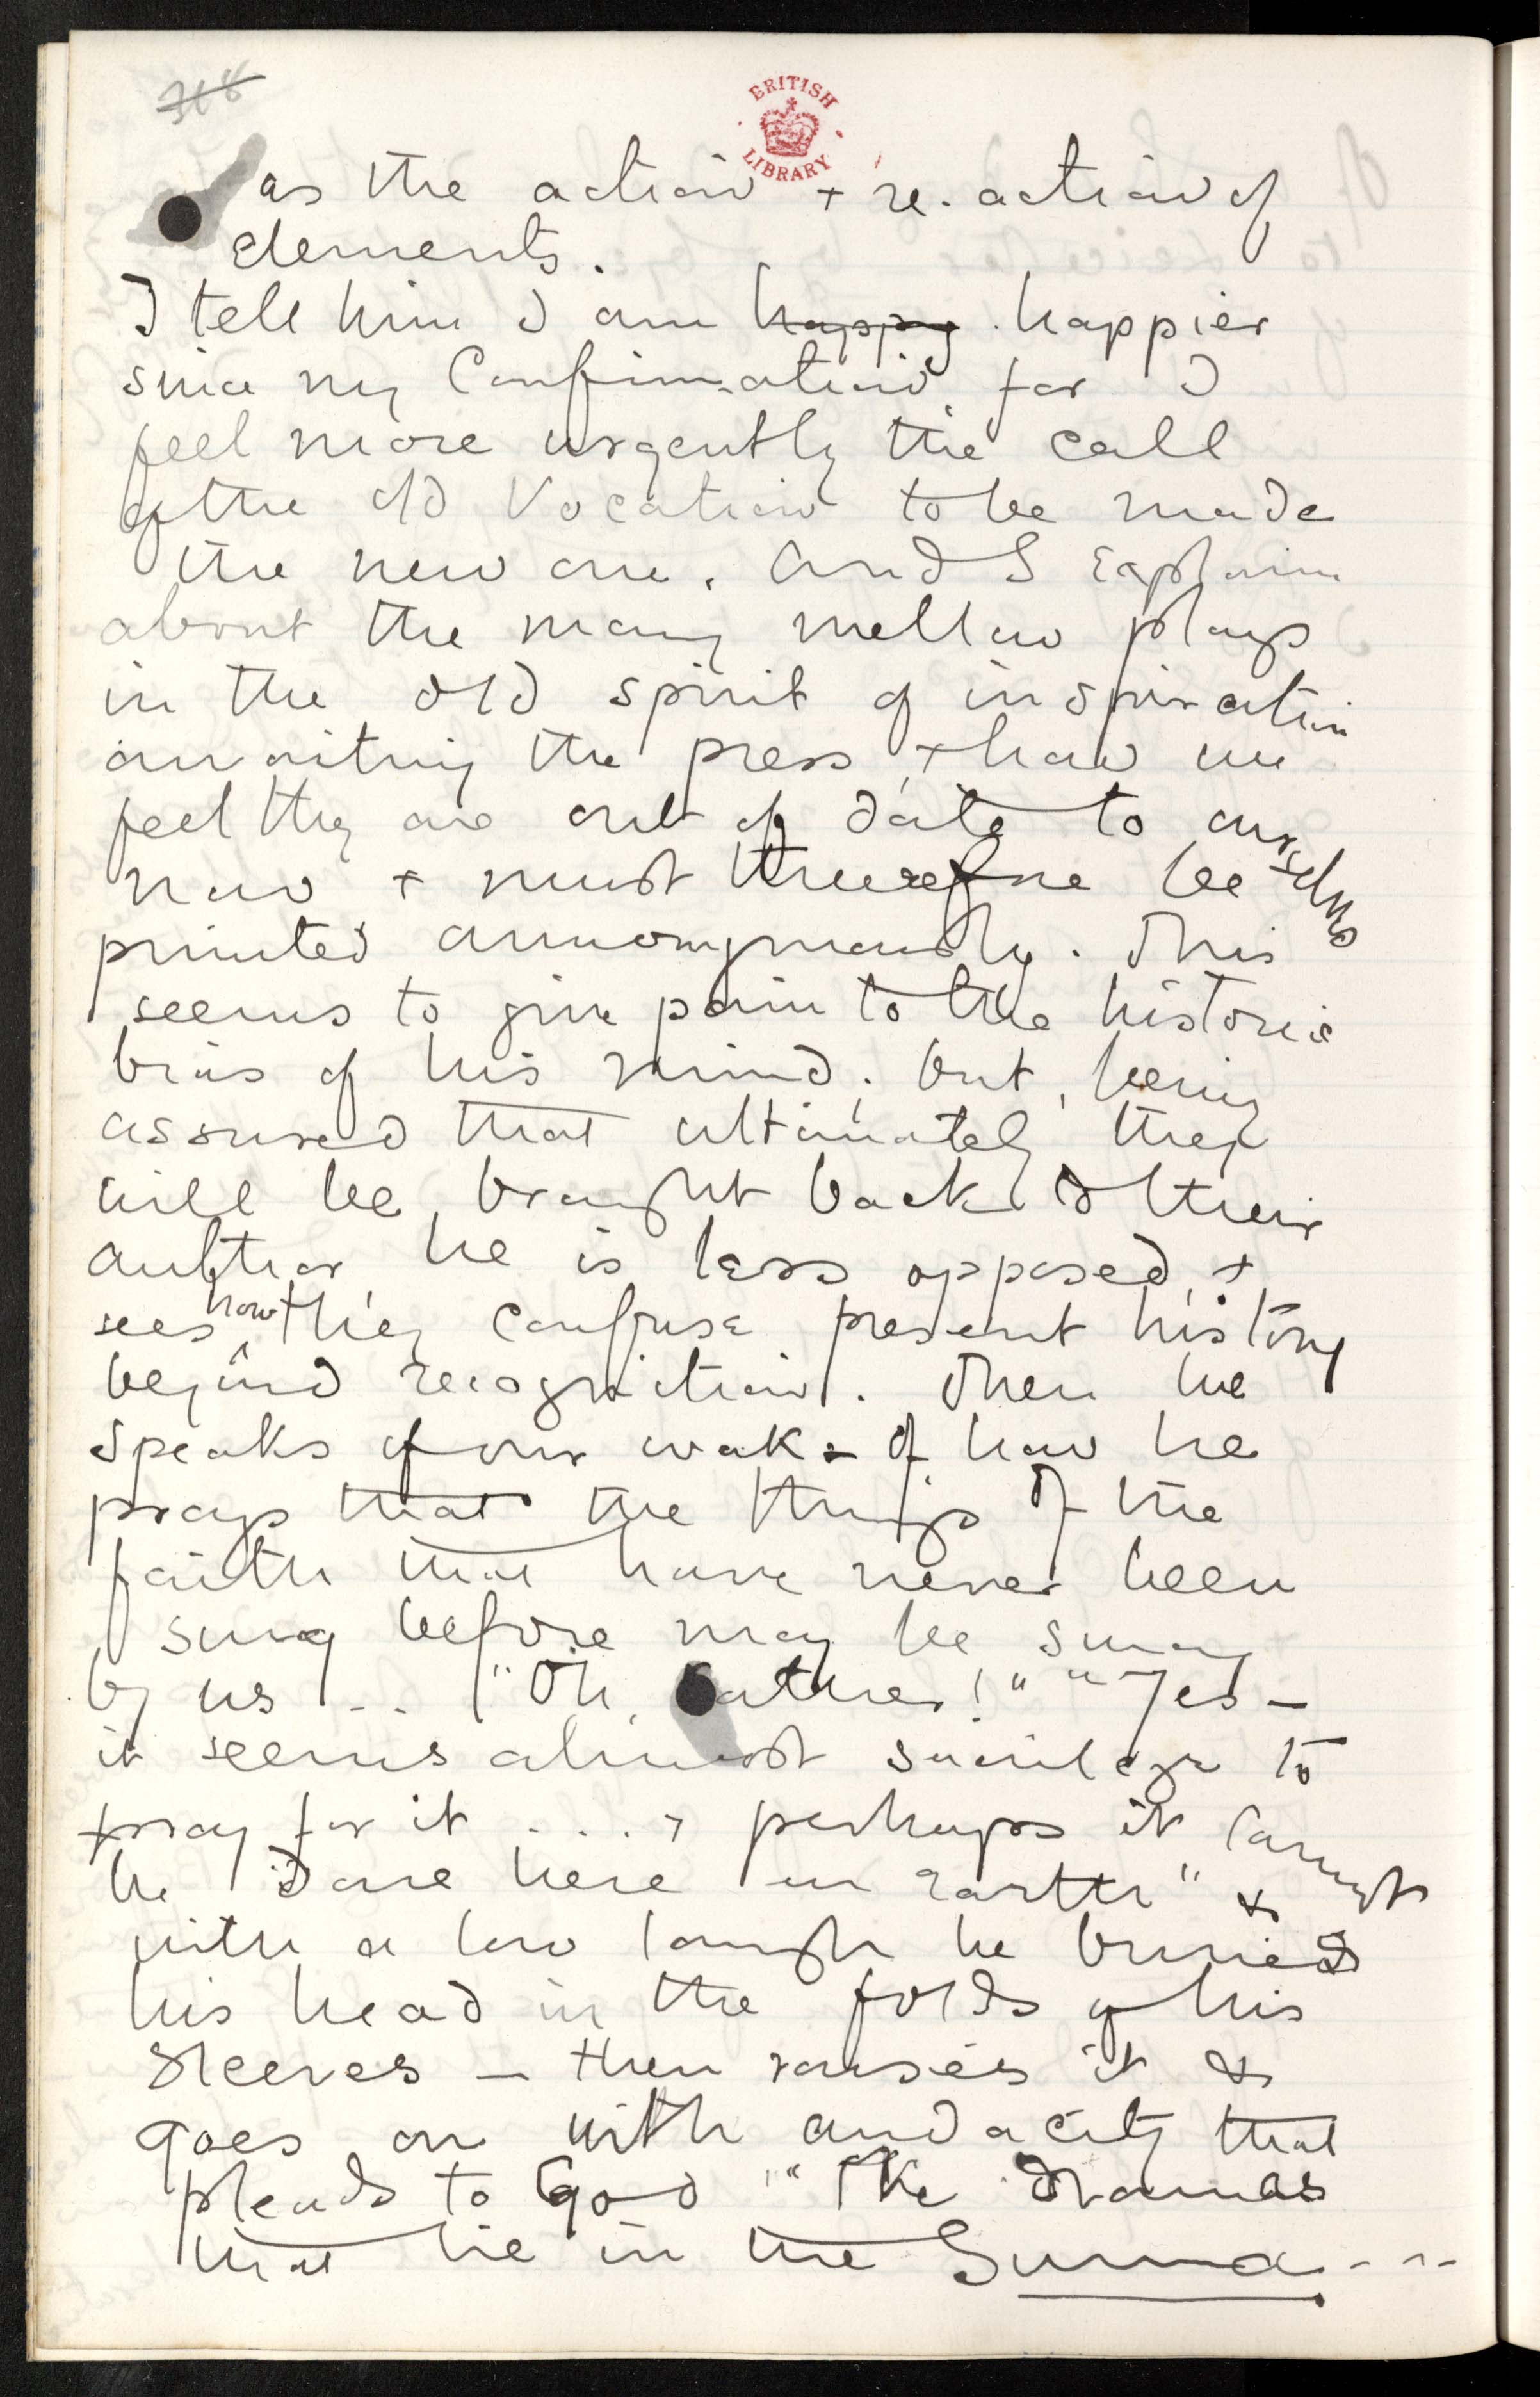 318
BRITISH
LIBRARY
as the action + re-action of
elements.
I tell him I am happy happier
since my Confirmation, for I
feel more urgently the call
of the old Vocation to be made
the new one. And I explain
about the many mellow plays
in the old spirit of inspiration
awaiting the press, + how we
feel they are out of date to ourselves
now + must therefore be
printed annonymously. This
seems to give pain to the historic
bias of his mind; but, being
assured that ultimately they
will be brought back to their
author, he is less opposed, +
sees how they confuse present history
beyond recognition. Then he
speaks of our work - of how he
prays that the things of the
faith that have never been
sung before may be sung
by us ... "Oh, Father!" "Yes -
it seems almost sacrilege to
pray for it .... perhaps it cannot
be done here on earth" &
with a low laugh he buries
his head in the folds of his
sleeves - then raises it &
goes on with audacity that
pleads to God "The dramas
that lie in the Summa ---